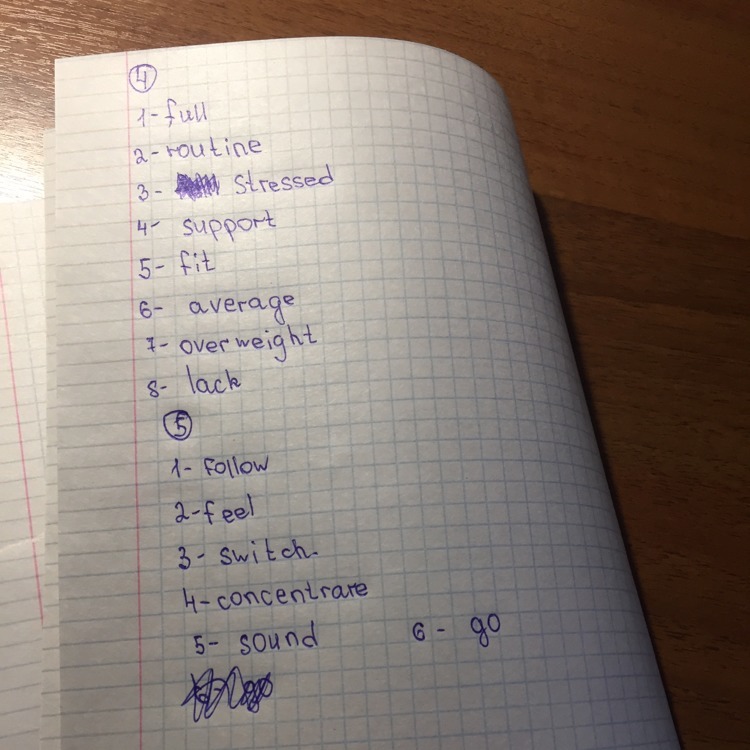 4
1- full
2- routine
3- stressed
4- support
5- fit
6- average
7- overweight
8- lack
5
1- Follow
2- feel
3- switch.
4- concentrare
5- sound 6- go